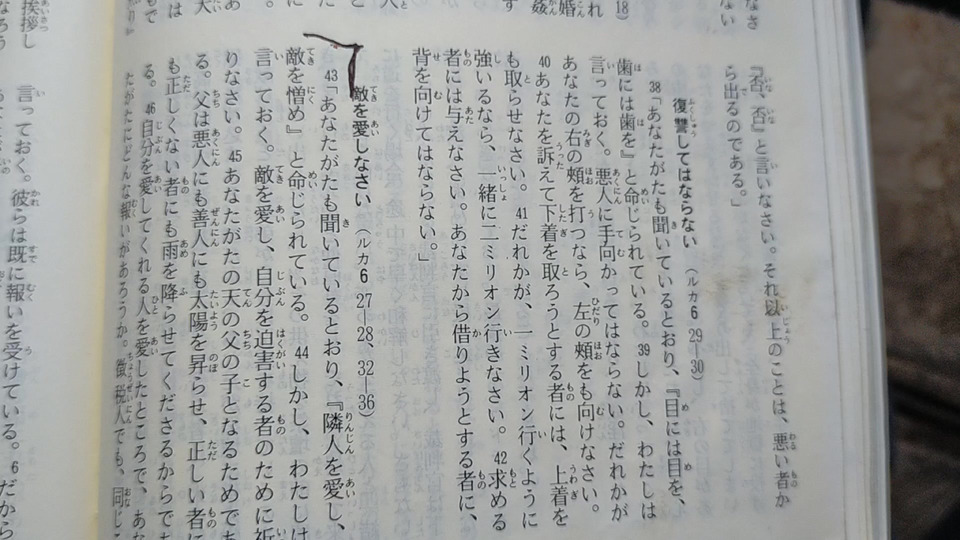 なさ
『否、否』と言いなさい。それ以上のことは、悪い者か
ら出るのである。」
復讐してはならない （ルカ6 29―30）
38「あなたがたも聞いているとおり、『目には目を、
歯には歯を』と命じられている。39しかし、わたしは
言っておく。悪人に手向かってはならない。だれかが
あなたの右の頬を打つなら、左の頬をも向けなさい。
40あなたを訴えて下着を取ろうとする者には、上着を
も取らせなさい。41だれかが、一ミリオン行くように
強いるなら、一緒に二ミリオン行きなさい。42求める
者には与えなさい。あなたから借りようとする者に、
背を向けてはならない。」
敵を愛しなさい （ルカ6 27―28、32―36）
43「あなたがたも聞いているとおり、『隣人を愛し、
敵を憎め』と命じられている。44しかし、わたしは
言っておく。敵を愛し、自分を迫害する者のために祈
りなさい。45あなたがたの天の父の子となるためであ
る。父は悪人にも善人にも太陽を昇らせ、正しい者に
も正しくない者にも雨を降らせてくださるからであ
る。46自分を愛してくれる人を愛したところで、あな
たがたにどんな報いがあろうか。徴税人でも、同じこ
言っておく。彼らは既に報いを受けている。6だから